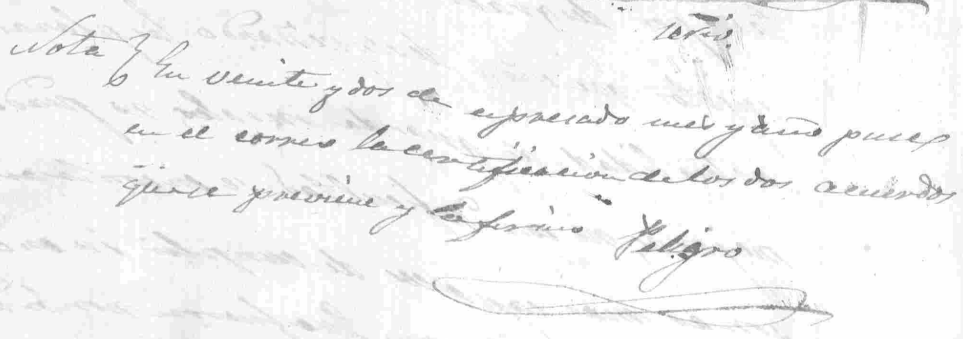 Nota } En veinte y dos de espresado mes y año puse
en el correo la certificacion de los dos acuerdos
que se previene y lo firmo Peligro